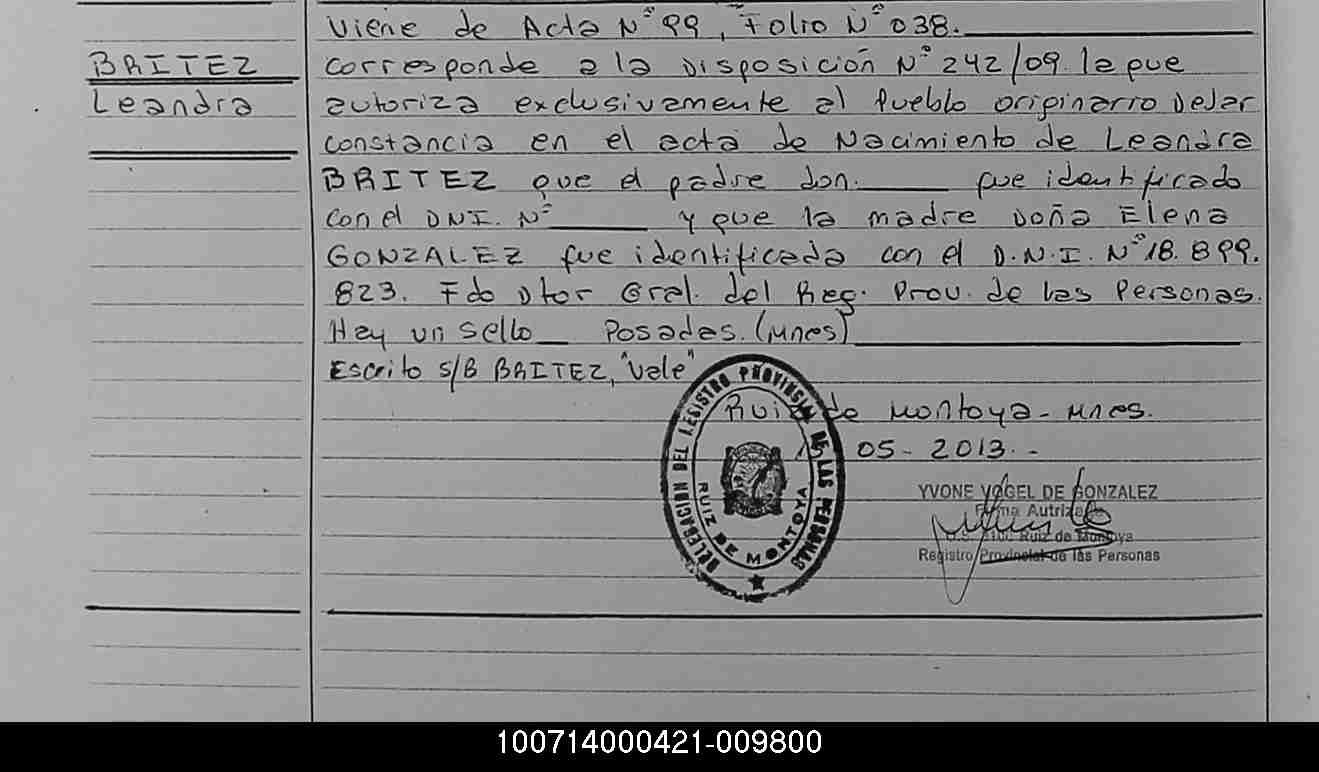 Viene de Acta N° 99, Folio N° 038.
BRITEZ
Leandra
corresponde a la Disposición N° 242/09. la que
autoriza exclusivamente al Pueblo originario Dejar
constancia en el acta de Nacimiento de Leandra
BRITEZ que el padre don. ____ fue identificado
con el DNI. N° ____ y que la madre Doña Elena
GONZALEZ fue identificada con el D.N.I. N° 18.899.
823. Fdo Dtor Gral. del Reg. Prov. de las Personas.
Hay un sello _ Posadas. (Mnes)
Escrito S/B BRITEZ, "Vale"
Ruiz de Montoya - Mnes.
05 - 2013. -
DELEGACION DEL REGISTRO PROVINCIAL DE LAS PERSONAS
RUIZ DE MONTOYA
YVONE VOGEL DE GONZALEZ
Firma Autrizada
Ruiz de Montoya
Registro Provincial de las Personas
100714000421-009800